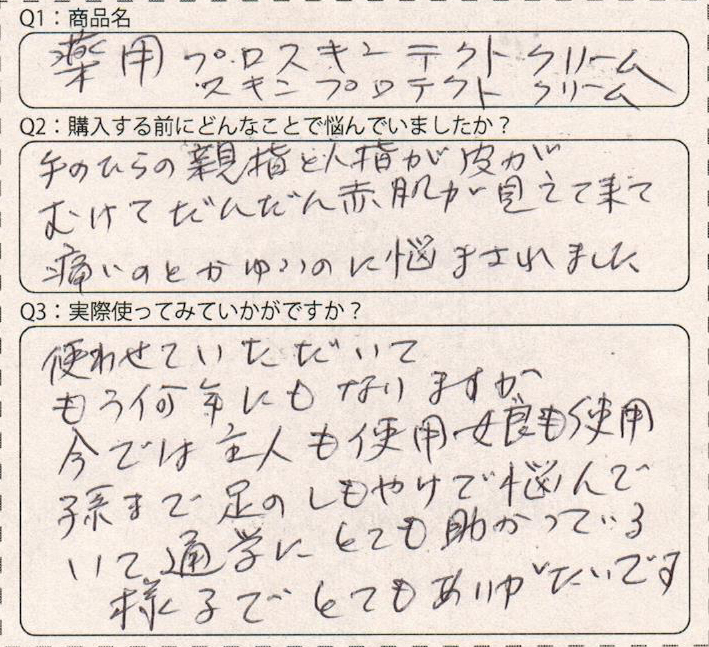 Q1：商品名
薬用 プロスキンテクトクリーム
スキンプロテクトクリーム
Q2：購入する前にどんなことで悩んでいましたか？
手のひらの親指と人指が皮が
むけてだんだん赤肌が見えて来て
痛いのとかゆいのに悩まされました
Q3：実際使ってみていかがですか？
使わせていただいて
もう何年にもなりますが
今では主人も使用娘も使用
孫まで足のしもやけで悩んで
いて通学にとても助かっている
様子でとてもありがたいです